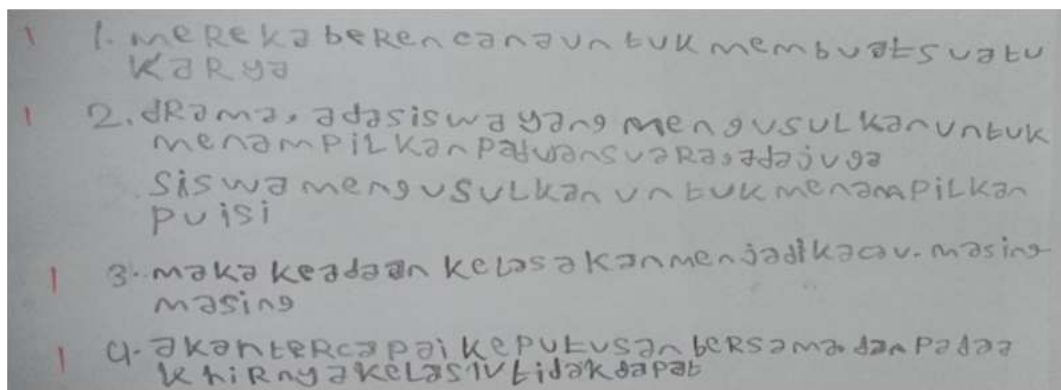 1 1. meReka beRencana untuk membuat suatu
kaRya
1 2. dRama, ada siswa yang mengusulkan untuk
menampilkan paduan suaRa, ada juga
siswa mengusulkan untuk menampilkan
puisi
1 3. maka keadaan kelas akan menjadi kacau. masing
masing
1 4. akan teRcapai keputusan beRsama dan padaa
khiRnya kelas IV tidak dapat